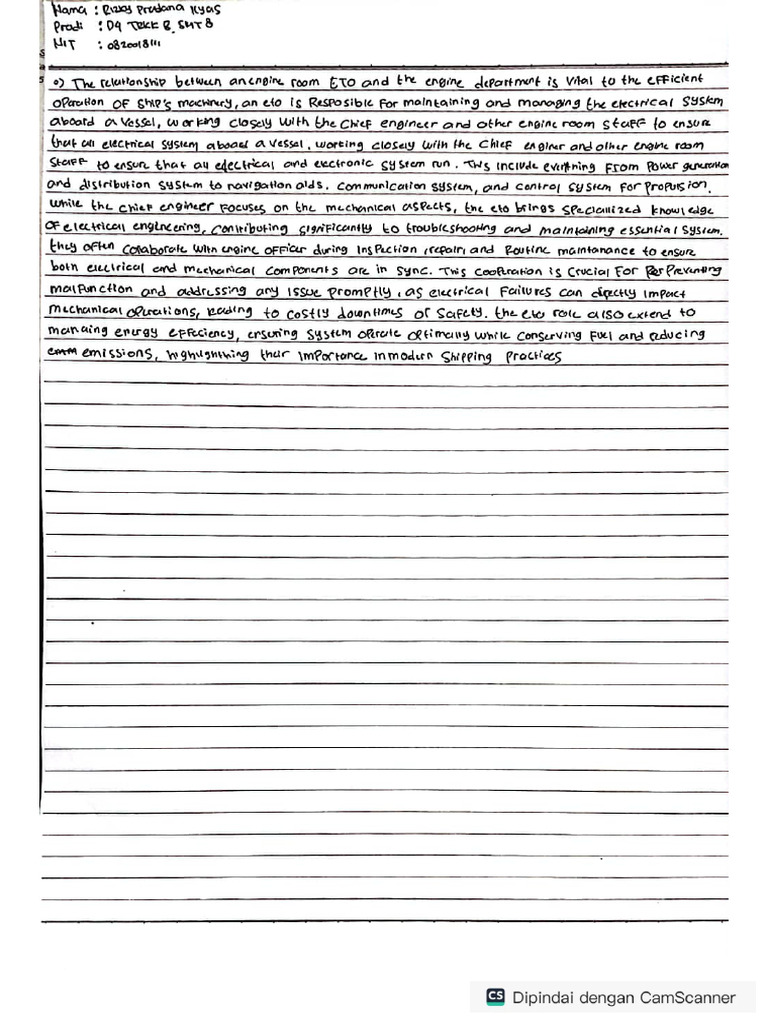 Nama : Rizky Pradana Ilyas
Prodi : D4 TRKK B SMT 8
NIT : 0820018111
o) The relationship between an engine room ETO and the engine department is vital to the efficient
operation of ship's machinery, an eto is Resposible for maintaining and managing the electrical system
aboard a vessel, working closely with the chief engineer and other engine room staff to ensure
that all electrical system aboad a vessel, working closely with the chief enginer and other engine room
staff to ensure that all electrical and electronic system run. This include everithing from power generation
and distribution system to navigation aids. communication system, and control system for propulsion.
while the chief engineer focuses on the mechanical aspects, the eto brings specialized knowledge
of electrical engineering, contributing significantly to troubleshooting and maintaining essential system.
they often colaborate with engine officer during inspection, repair, and Routine maintanance to ensure
both electrical and mechanical components are in sync. This cooperation is crucial for preventing
malfunction and addressing any issue promptly, as electrical failures can directly impact
mechanical operations, leading to costly downtimes or safety. the eto role also extend to
managing energy efficiency, ensuring system operate optimally while conserving fuel and reducing
emissions, highlighthing their importance in modern shipping practices
CS Dipindai dengan CamScanner